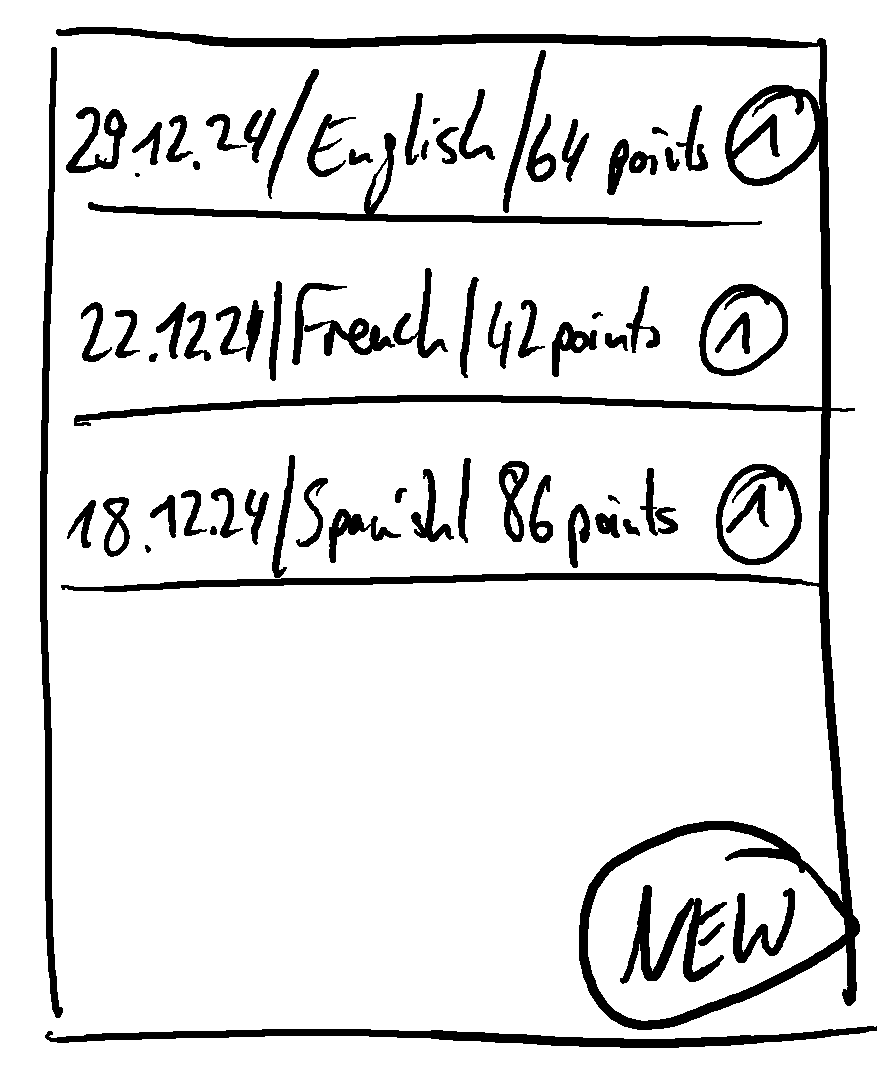 29.12.24/English/64 points 1
22.12.21/French/42 points 1
18.12.24/Spanish/86 points 1
NEW